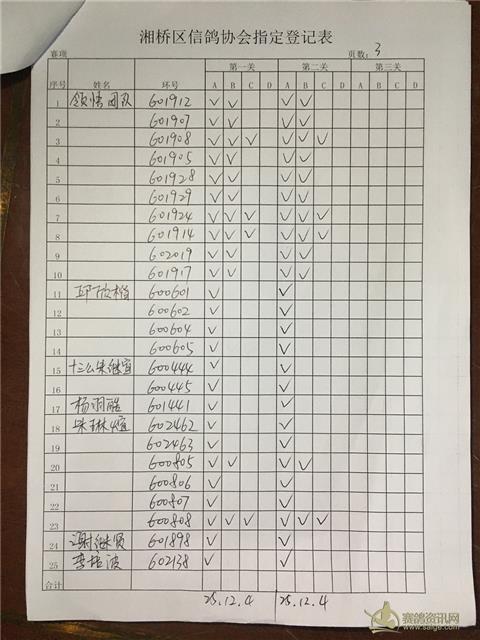 湘桥区信鸽协会指定登记表
赛项 页数: 3
序号 姓名 环号 第一关 第二关 第三关
A B C D A B C D A B C D
1 领悟团队 601912 ✓ ✓ ✓ ✓
2 601907 ✓ ✓ ✓ ✓
3 601908 ✓ ✓ ✓ ✓ ✓ ✓
4 601905 ✓ ✓ ✓ ✓
5 601928 ✓ ✓ ✓ ✓
6 601929 ✓ ✓ ✓ ✓
7 601924 ✓ ✓ ✓ ✓ ✓ ✓
8 601914 ✓ ✓ ✓ ✓ ✓ ✓
9 602019 ✓ ✓ ✓ ✓
10 601917 ✓ ✓ ✓ ✓
11 600601 ✓ ✓
12 600602 ✓ ✓
13 600604 ✓ ✓
14 600605 ✓ ✓
15 600444 ✓ ✓
16 600445 ✓ ✓
17 杨羽皓 601441 ✓ ✓
18 602462 ✓ ✓
19 602463 ✓ ✓
20 600805 ✓ ✓ ✓ ✓
21 600806 ✓ ✓
22 600807 ✓ ✓
23 600808 ✓ ✓ ✓ ✓ ✓ ✓
24 谢继贤 601898 ✓ ✓
25 李培波 602138 ✓ ✓
合计
25.12.4 25.12.4
赛鸽资讯网
www.saige.com